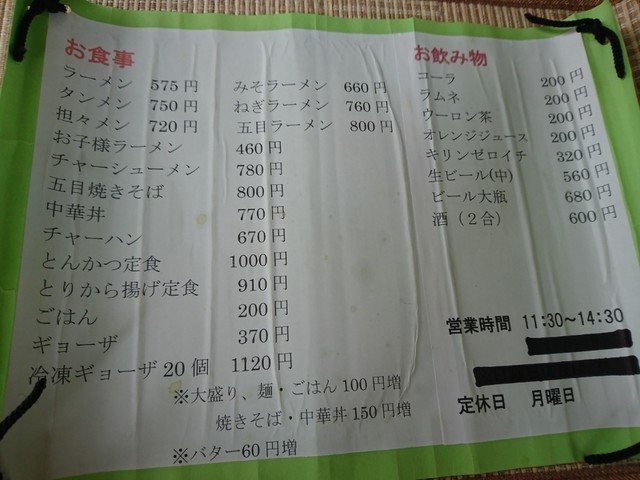 お食事
ラーメン 575円 みそラーメン 660円
タンメン 750円 ねぎラーメン 760円
担々メン 720円 五目ラーメン 800円
お子様ラーメン 460円
チャーシューメン 780円
五目焼きそば 800円
中華丼 770円
チャーハン 670円
とんかつ定食 1000円
とりから揚げ定食 910円
ごはん 200円
ギョーザ 370円
冷凍ギョーザ20個 1120円
※大盛り、麺・ごはん100円増
焼きそば・中華丼150円増
※バター60円増
お飲み物
コーラ 200円
ラムネ 200円
ウーロン茶 200円
オレンジジュース 200円
キリンゼロイチ 320円
生ビール(中) 560円
ビール大瓶 680円
酒(2合) 600円
営業時間 11:30~14:30
定休日 月曜日